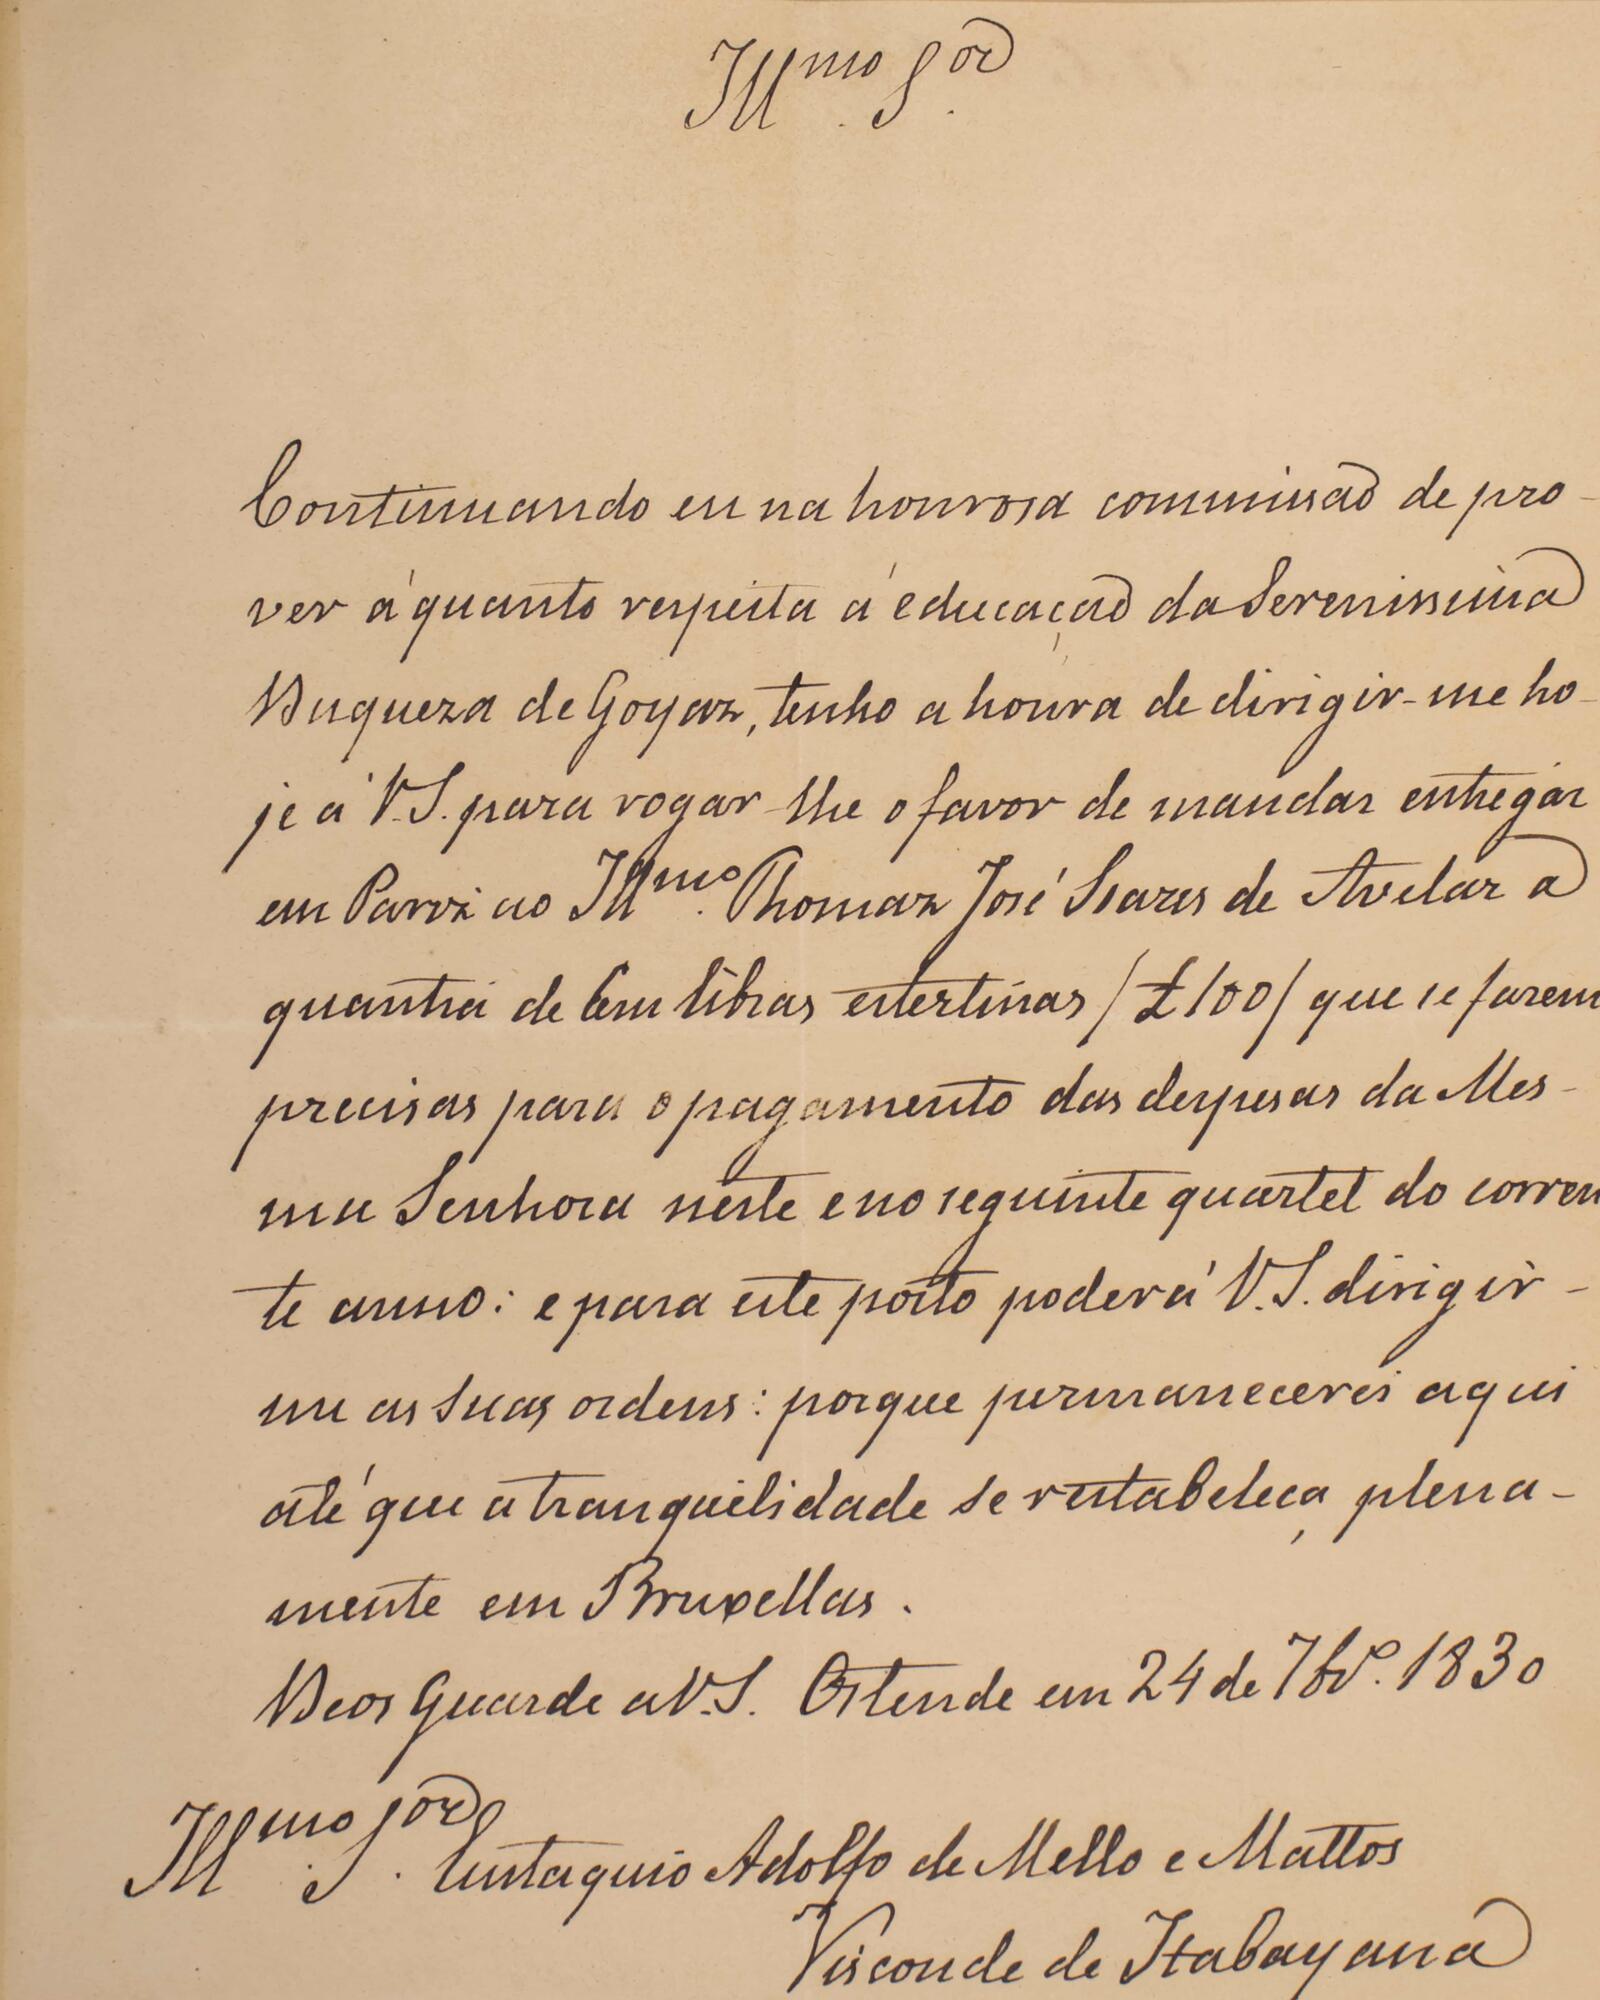 Ill.mo S.or
Continuando eu na honrosa commissaõ de pro-
ver á quanto respeita á educaçaõ da Serenissima
Duqueza de Goyaz, tenho a honra de dirigir-me ho-
je á V.S. para rogar-lhe o favor de mandar entregar
em Pariz ao Ill.mo Thomaz José Soares de Avelar a
quantia de Cem libras esterlinas / £ 100 / que se fazem
precisas para o pagamento das despesas da Mes-
ma Senhora neste e no seguinte quartel do corren
te anno: e para este porto poderá V.S. dirigir-
me as suas ordens: porque permanecerei aqui
até que a tranquilidade se restabeleça plena-
mente em Bruxellas.
Deos Guarde a V.S. Ostende em 24 de 7br.º 1830
Ill.mo S.or Eustaquio Adolfo de Mello e Mattos
Visconde de Itabayana